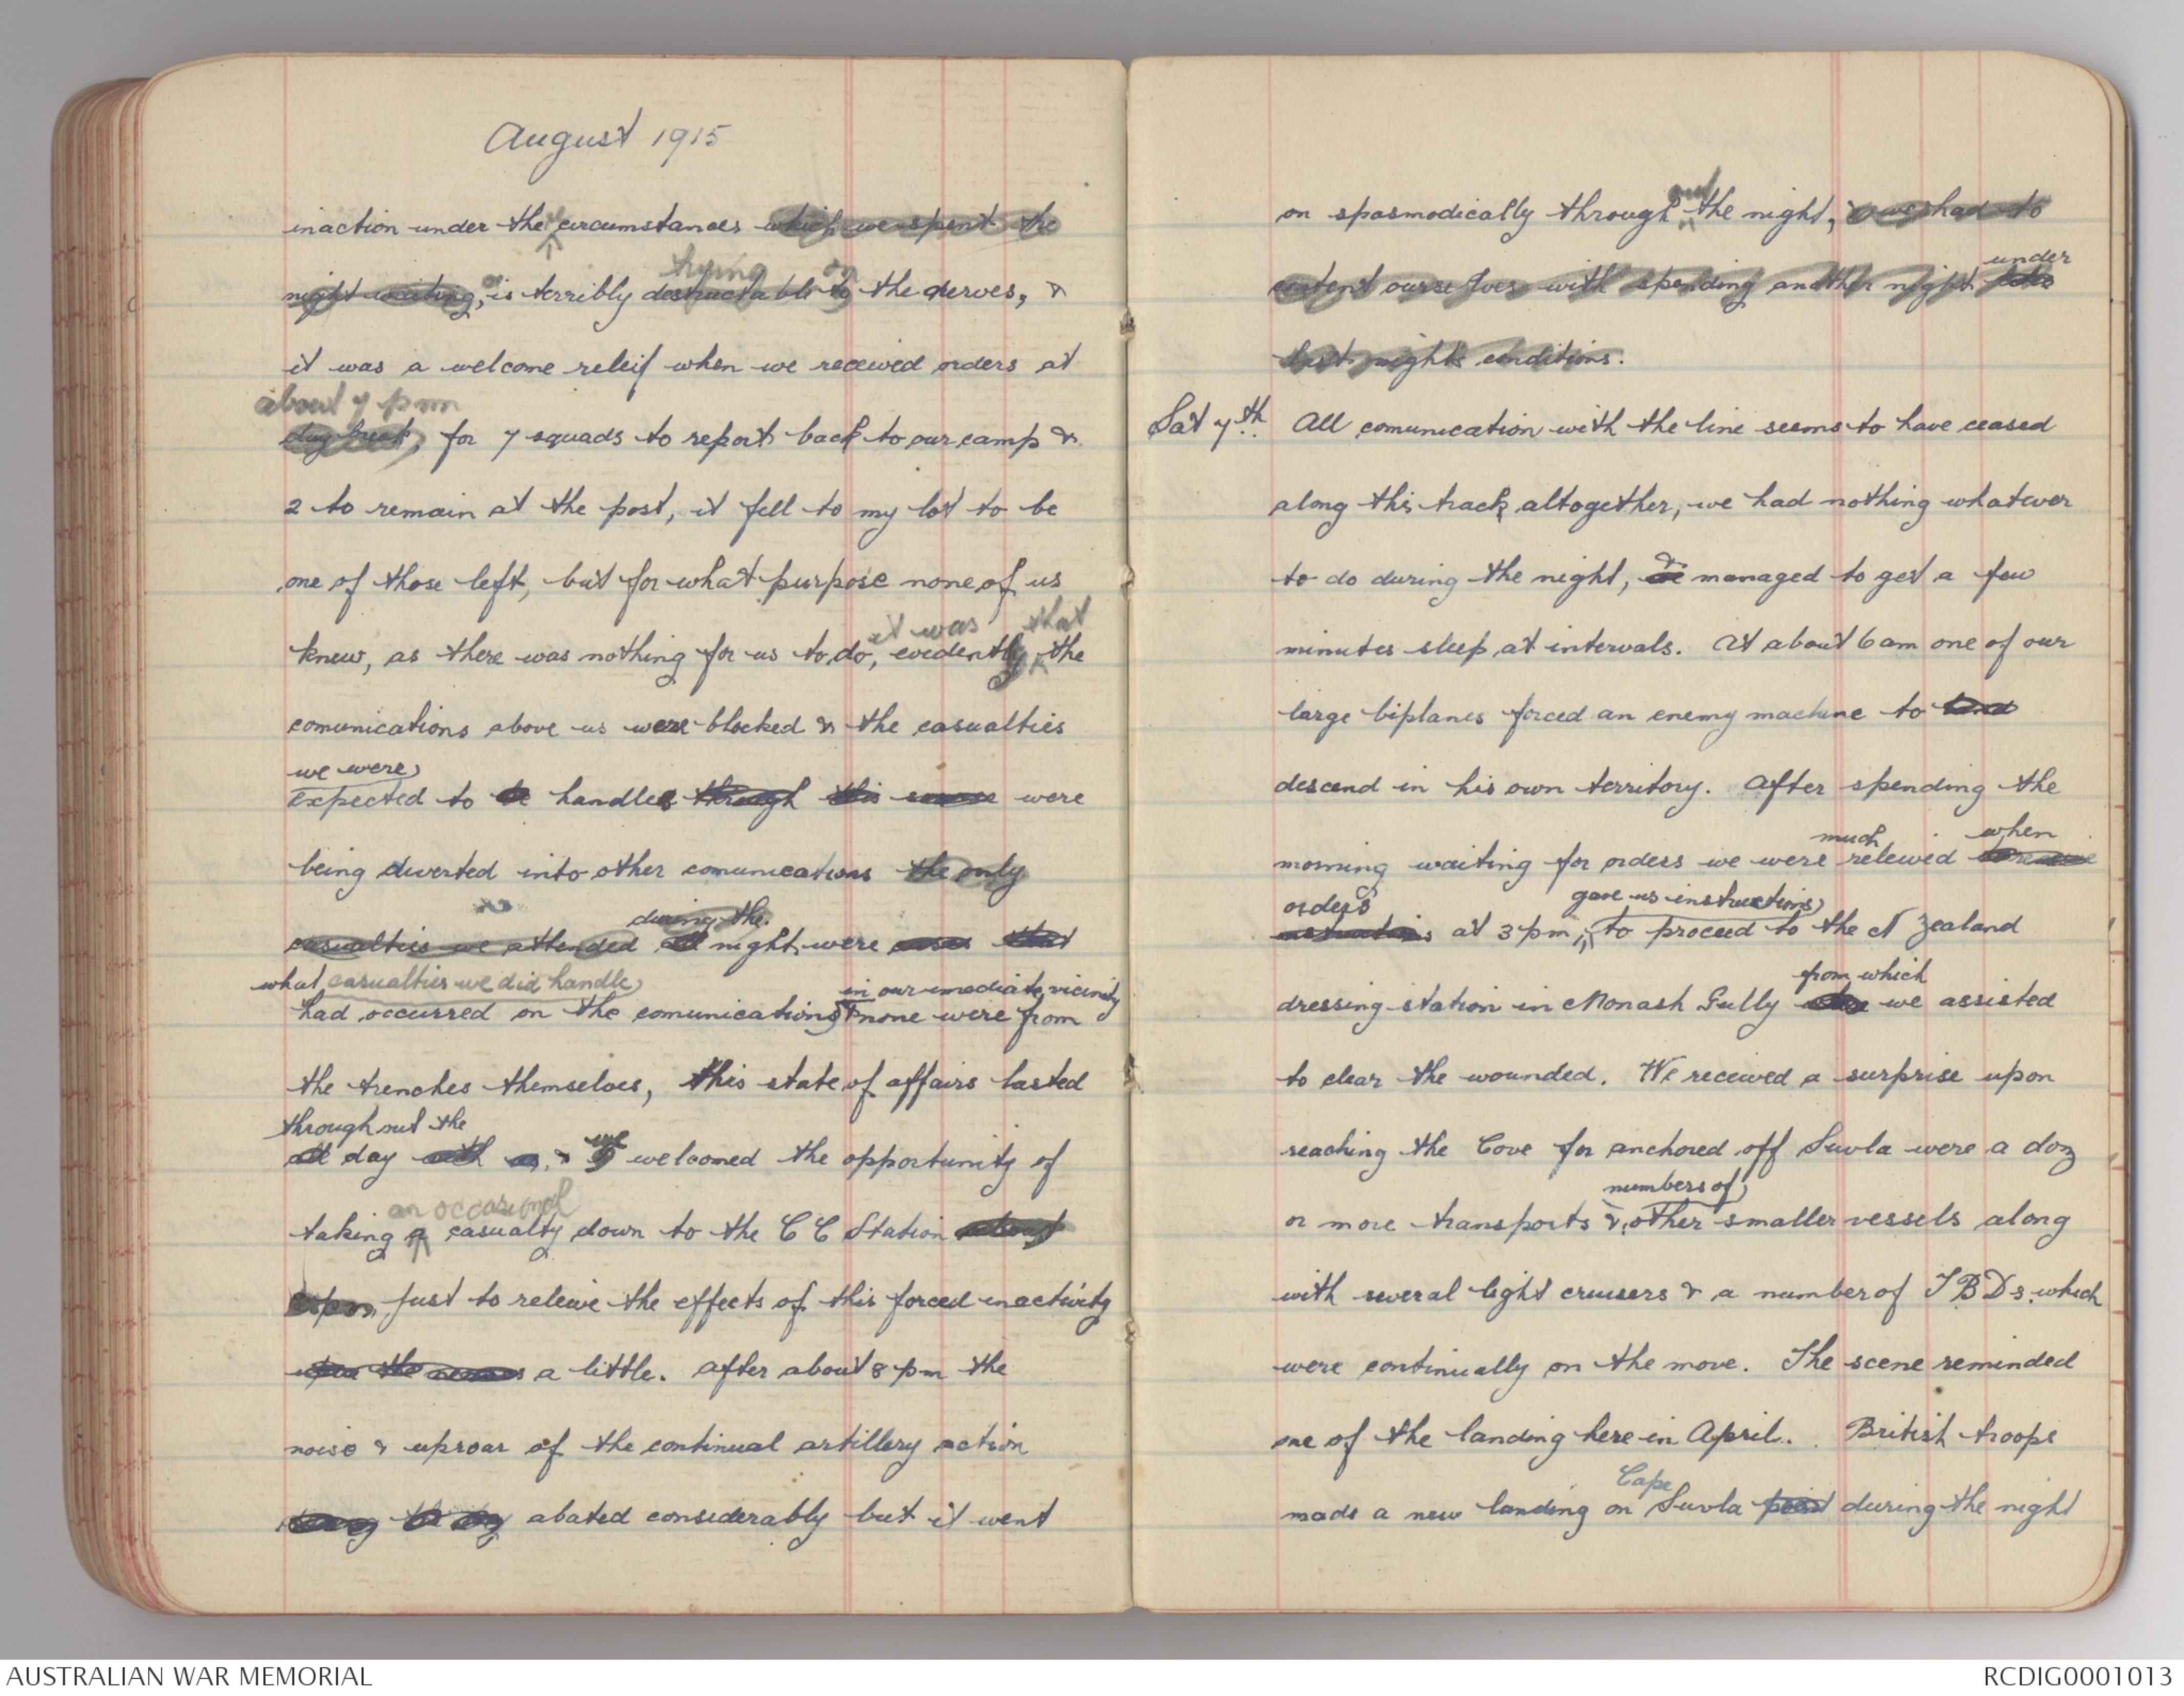 August 1915
inaction under the circumstances which we spent the
night waiting, is terribly destructable to the nerves, &
trying on
it was a welcome releif when we received orders at
about 7 pm
day break, for 7 squads to report back to our camp &
2 to remain at the post, it fell to my lot to be
one of those left, but for what purpose none of us
it was that
knew, as there was nothing for us to do, evidently the
comunications above us were blocked & the casualties
we were
expected to be handled through this were
being diverted into other comunications the only
during the
casualties we attended all night were cases that
what casualties we did handle
in our imediate vicinity
had occurred on the comunications & none were from
the trenches themselves, this state of affairs lasted
throughout the
all day with us. & we welcomed the opportunity of
an occasional
taking a casualty down to the C C Station about
6 pm, just to releive the effects of this forced inactivity
upon the nerves a little. After about 8 pm the
noise & uproar of the continual artillery action
during the day abated considerably but it went
on spasmodically through out the night, & we had to
under
content ourselves with spending another night
last nights conditions.
Sat 7th. All comunication with the line seems to have ceased
along this track altogether, we had nothing whatever
to do during the night, & managed to get a few
minutes sleep at intervals. At about 6 am one of our
large biplanes forced an enemy machine to land
descend in his own territory. After spending the
much when
morning waiting for orders we were releived
orders gave us instructions
instructions at 3 pm, to proceed to the N Zealand
from which
dressing station in Monash Gully we assisted
to clear the wounded. We received a surprise upon
reaching the Cove for anchored off Suvla were a doz
numbers of
or more transports & other smaller vessels along
with several light cruisers & a number of T B D s. which
were continually on the move. The scene reminded
one of the landing here in April. British troops
Cape
made a new landing on Suvla point during the night
AUSTRALIAN WAR MEMORIAL
RCDIG0001013